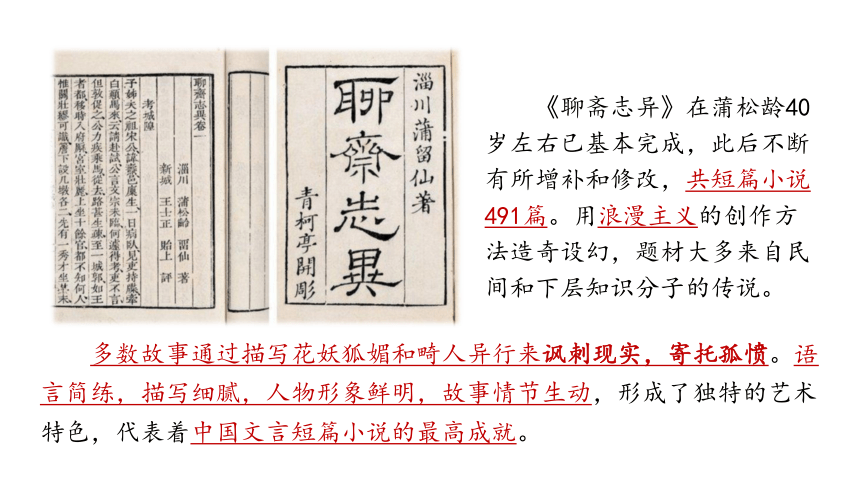 聊齋志異卷一
淄川 蒲松齡 留仙 著
新城 王士正 貽上 評
考城隍
子姊夫之祖宋公諱燾邑廩生一日病臥見吏持牒牽
白顚馬來云請赴試公言文宗未臨何遽得考吏不言
但敦促之公力疾乘馬從去路甚生疎至一城郭如王
者都移時入府廨宮室壯麗上坐十餘官都不知何人
惟關壯繆可識簷下設几墩各二先有一秀才坐其末
淄川蒲留仙著
聊齋志異
青柯亭開彫
《聊斋志异》在蒲松龄40
岁左右已基本完成，此后不断
有所增补和修改，共短篇小说
491篇。用浪漫主义的创作方
法造奇设幻，题材大多来自民
间和下层知识分子的传说。
多数故事通过描写花妖狐媚和畸人异行来讽刺现实，寄托孤愤。语
言简练，描写细腻，人物形象鲜明，故事情节生动，形成了独特的艺术
特色，代表着中国文言短篇小说的最高成就。